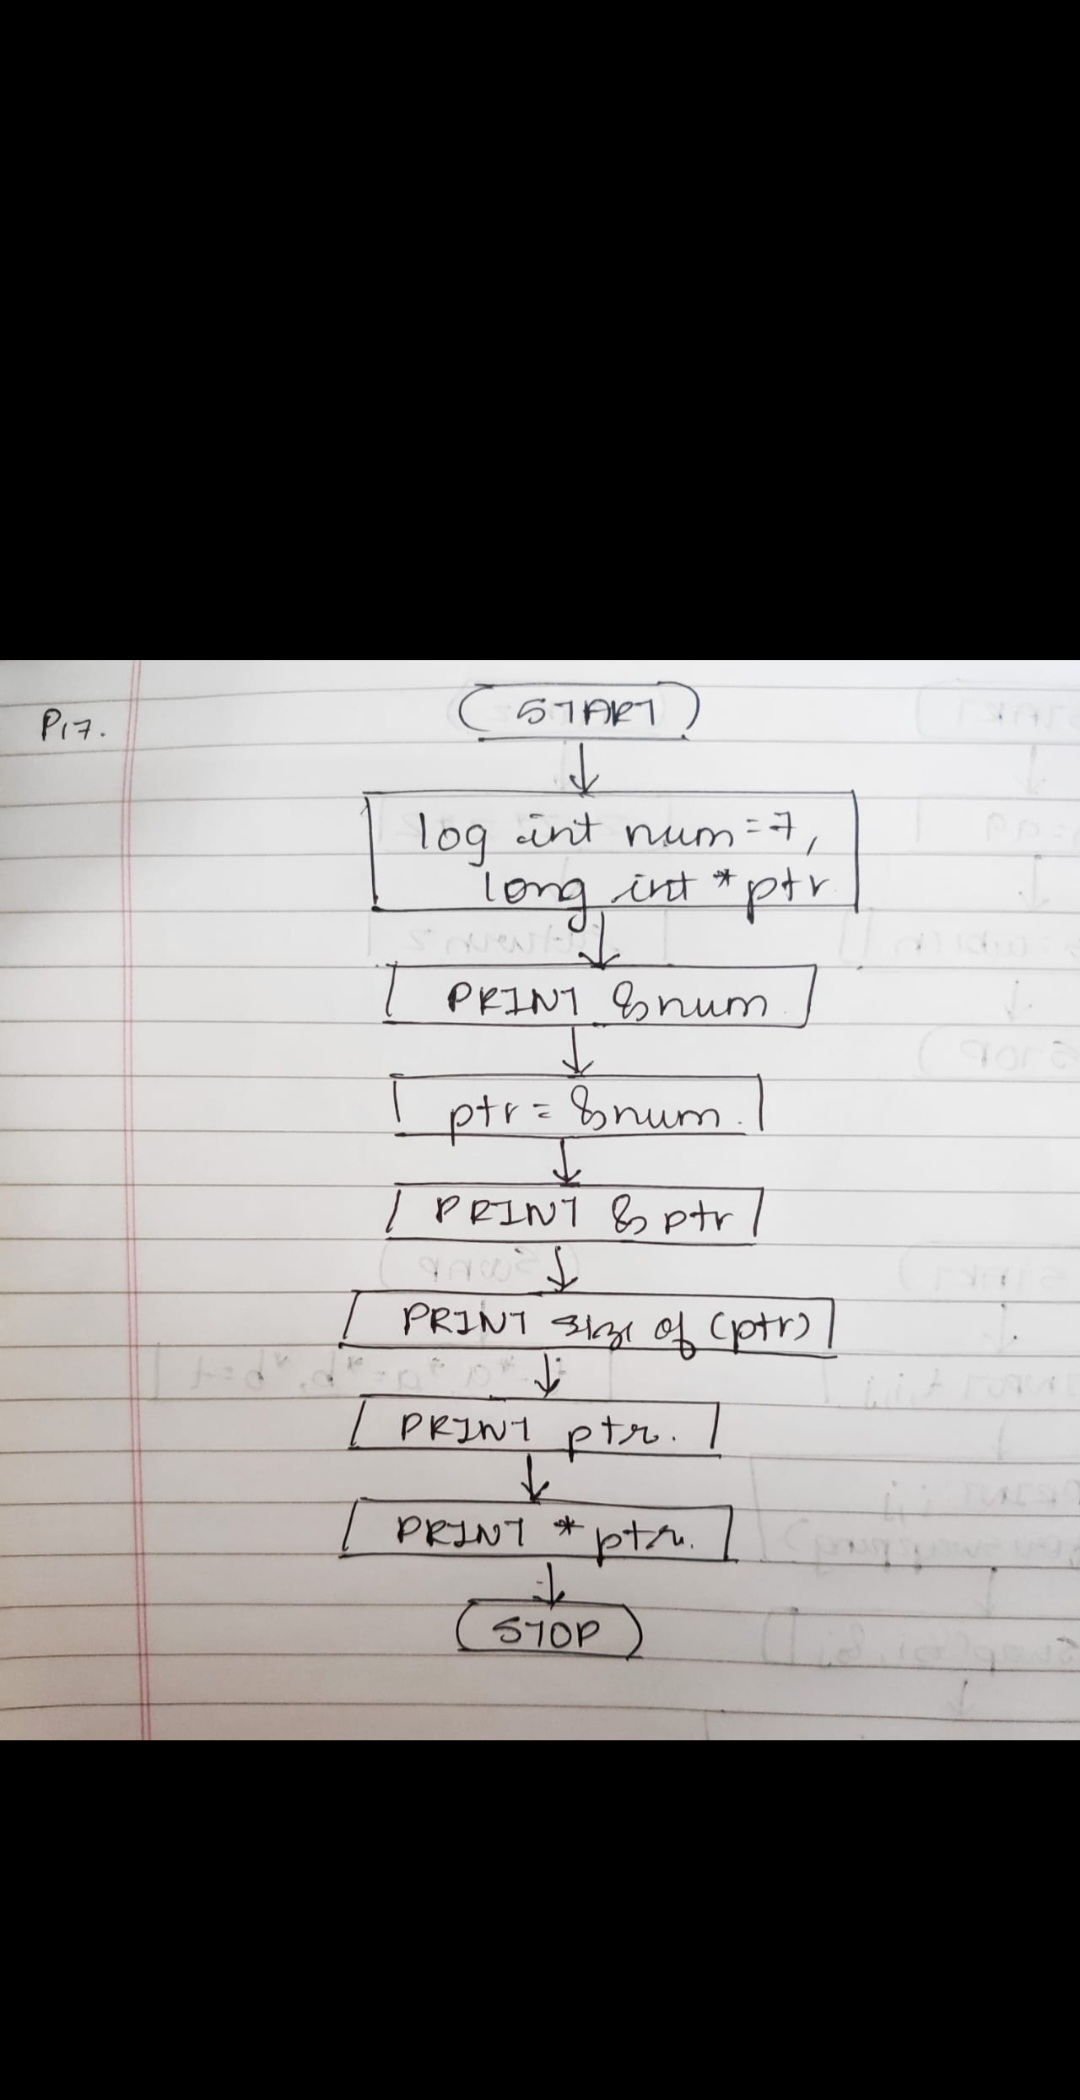 P17.
START
log int num=7,
long int *ptr
PRINT &num
ptr = &num.
PRINT & ptr
PRINT size of (ptr)
PRINT ptr.
PRINT * ptr.
STOP